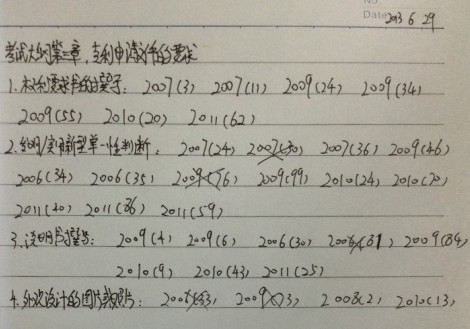 No.
Date 2013 6 29
考试大纲第三章,专利申请文件的要求
1.权利要求书的撰写: 2007(3) 2007(11) 2009(24) 2009(34)
2009(55) 2010(20) 2011(62)
2.发明/实用新型单一性判断: 2007(24) 2007(50) 2007(36) 2009(46)
2006(34) 2006(35) 2009(76) 2009(99) 2010(24) 2010(70)
2011(40) 2011(86) 2011(59)
3.说明书撰写: 2009(4) 2009(6) 2006(30) 2006(31) 2009(84)
2010(9) 2010(43) 2011(25)
4.外观设计的图片或照片: 2009(73) 2008(2) 2010(13)